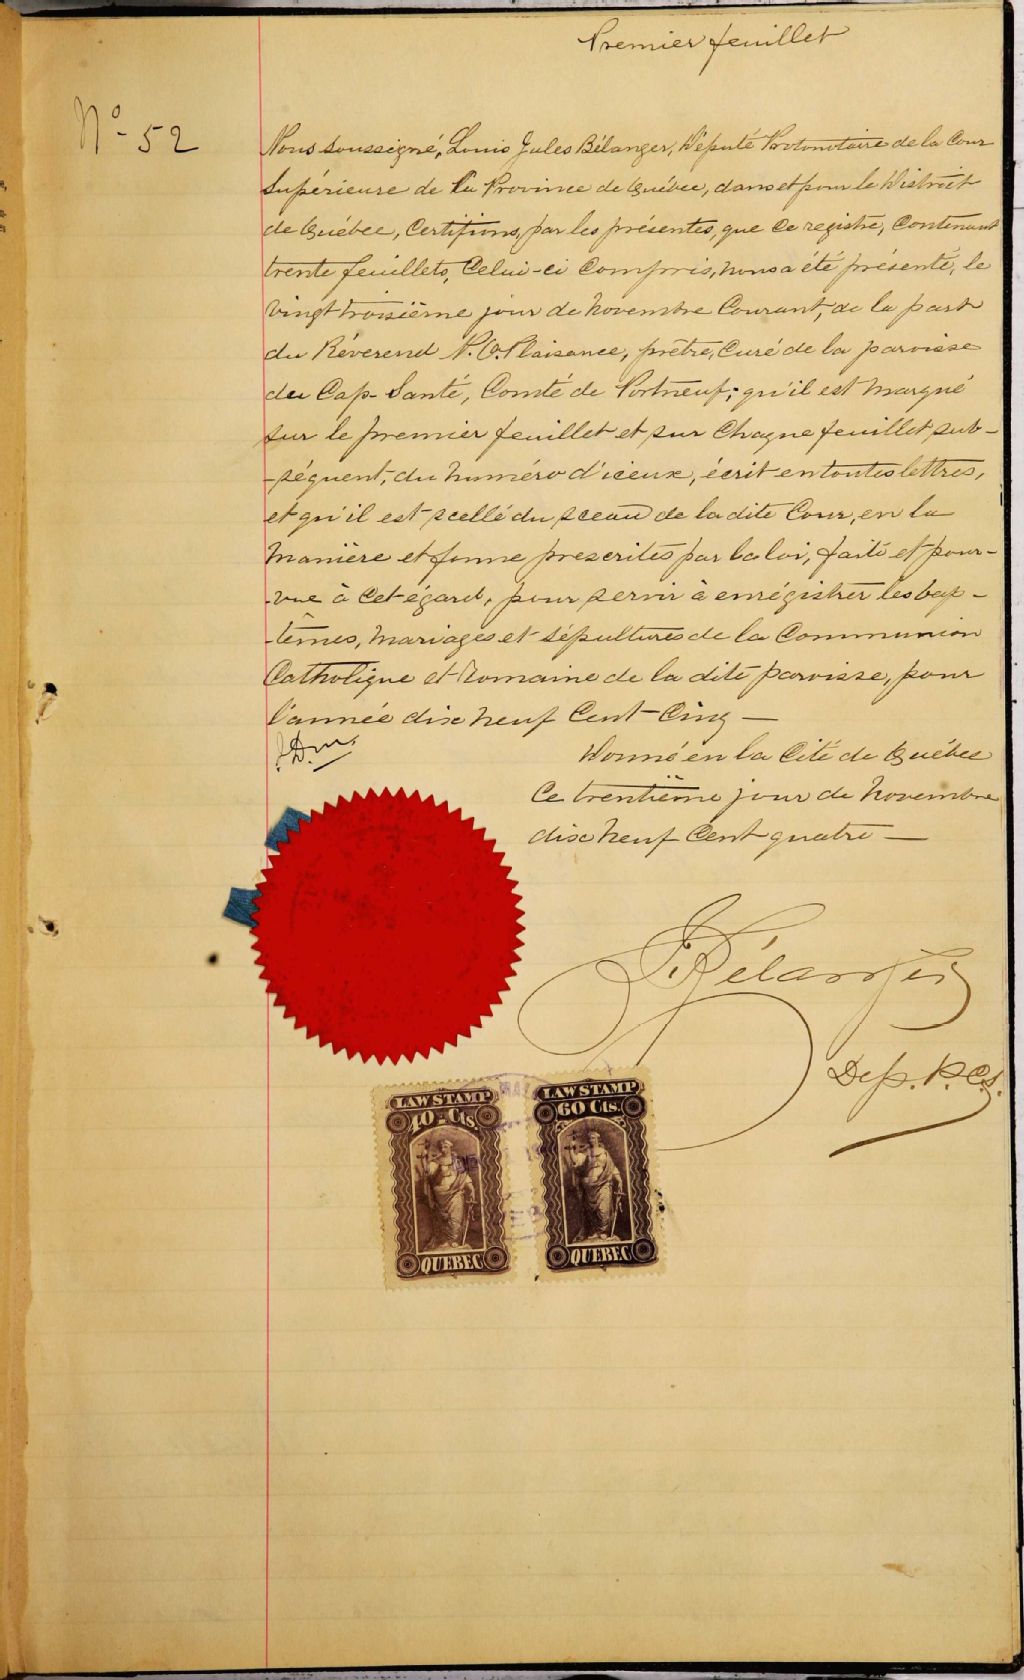 Premier feuillet
No 52
Nous soussigné, Louis Jules Bélanger, Député Protonotaire de la Cour
Supérieure de la Province de Québec, dans et pour le District
de Québec, Certifions, par les présentes, que ce registre, Contenant
trente feuillets, Celui-ci Compris, nous a été présenté, le
vingt troisième jour de Novembre Courant, de la part
du Révérend P. O. Plaisance, prêtre, Curé de la paroisse
du Cap-Santé, Comté de Portneuf; qu'il est marqué
sur le premier feuillet et sur Chaque feuillet sub-
-séquent, du numéro d'iceux, écrit en toutes lettres,
et qu'il est scellé du sceau de la dite Cour, en la
Manière et forme prescrites par la loi, faite et pour-
-vue à cet égard, pour servir à enrégistrer les bap-
-têmes, Mariages et sépultures de la Communion
Catholique et Romaine de la dite paroisse, pour
l'année dix neuf Cent-Cinq —
Donné en la Cité de Québec
Ce trentième jour de Novembre
dix neuf Cent quatre —
Bélanger
Dep. P.C.S.
LAW STAMP LAW STAMP
40 Cts. 60 Cts.
QUEBEC QUEBEC